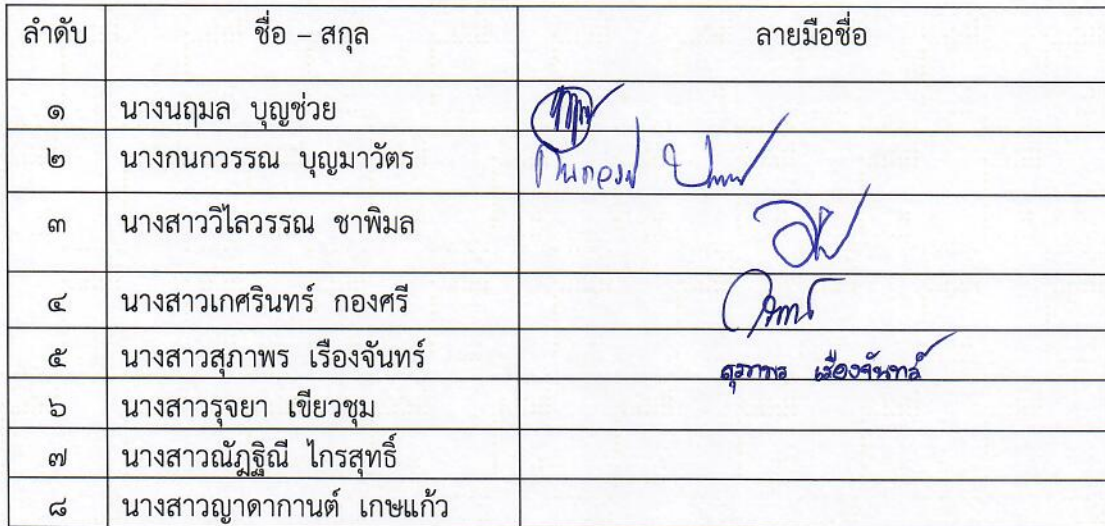 ลำดับ ชื่อ – สกุล ลายมือชื่อ
๑ นางนฤมล บุญช่วย
๒ นางกนกวรรณ บุญมาวัตร
๓ นางสาววิไลวรรณ ชาพิมล
๔ นางสาวเกศรินทร์ กองศรี
๕ นางสาวสุภาพร เรืองจันทร์ สุภาพร เรืองจันทร์
๖ นางสาวรุจยา เขียวชุม
๗ นางสาวณัฏฐิณี ไกรสุทธิ์
๘ นางสาวญาดากานต์ เกษแก้ว